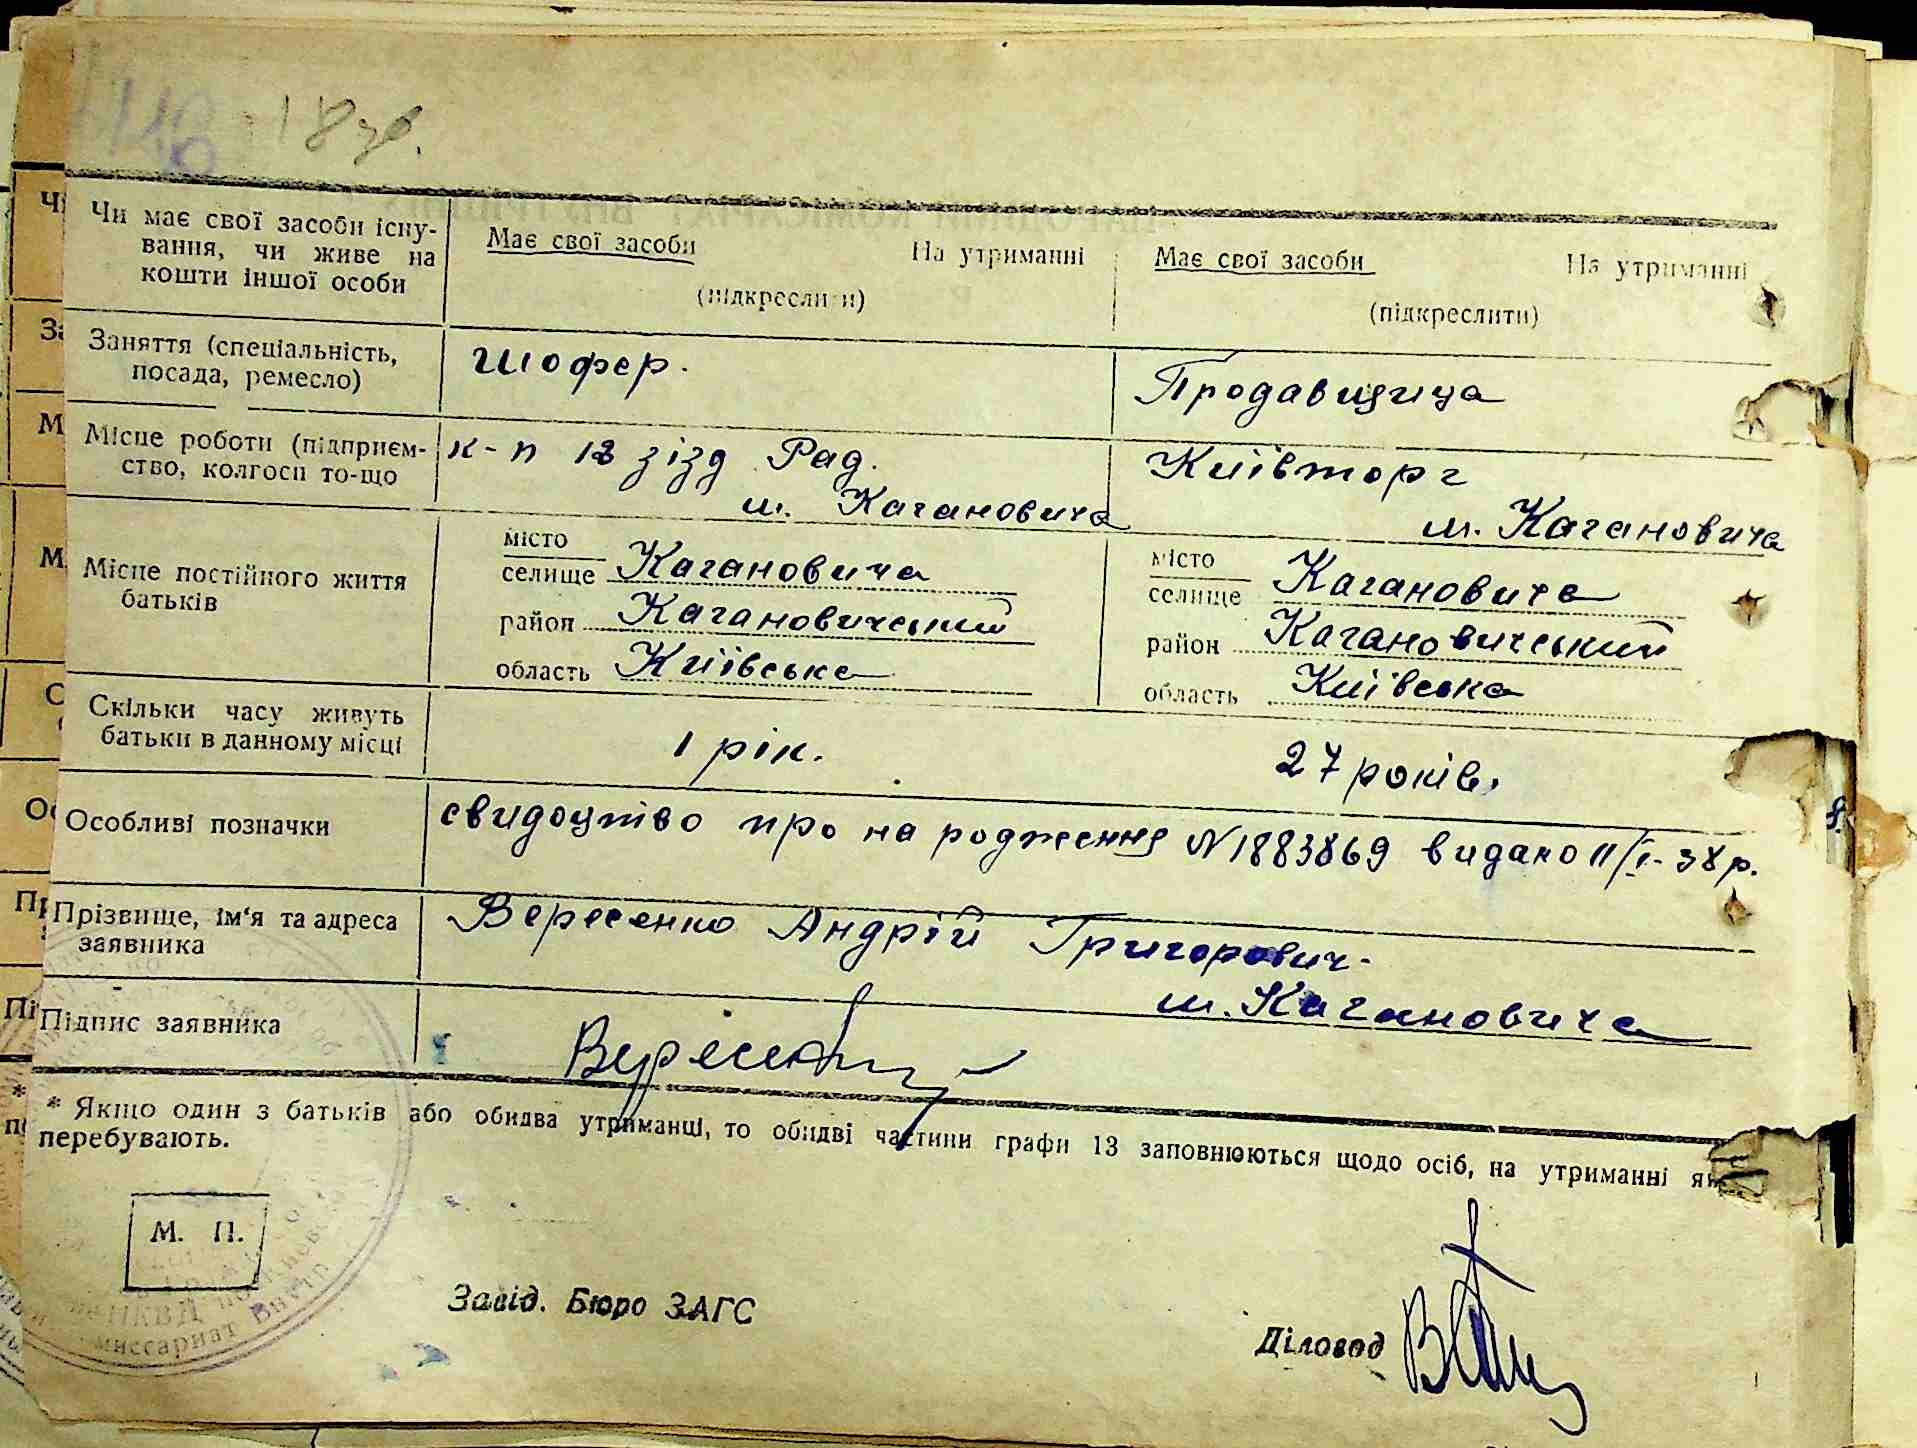 18 зв.
Чи має свої засоби існу-
вання, чи живе на
кошти іншої особи
Має свої засоби На утриманні
(підкреслити)
Має свої засоби На утриманні
(підкреслити)
Заняття (спеціальність,
посада, ремесло)
шофер.
Продавщица
Місце роботи (підприєм-
ство, колгосп то-що
к-п 18 зізд Рад.
м. Кагановича
Київторг
м. Кагановича
Місце постійного життя
батьків
місто
селище Кагановича
район Кагановичський
область Київська
місто
селище Кагановича
район Кагановичський
область Київська
Скільки часу живуть
батьки в данному місці
1 рік.
27 років.
Особливі позначки
свидоцтво про народження N 1883869 видано 11/I-38 р.
Прізвище, ім'я та адреса
заявника
Вересенко Андрій Григорович-
м. Кагановича
Підпис заявника
* Якщо один з батьків або обидва утриманці, то обидві частини графи 13 заповнюються щодо осіб, на утриманні як
перебувають.
М. П.
Завід. Бюро ЗАГС
Діловод